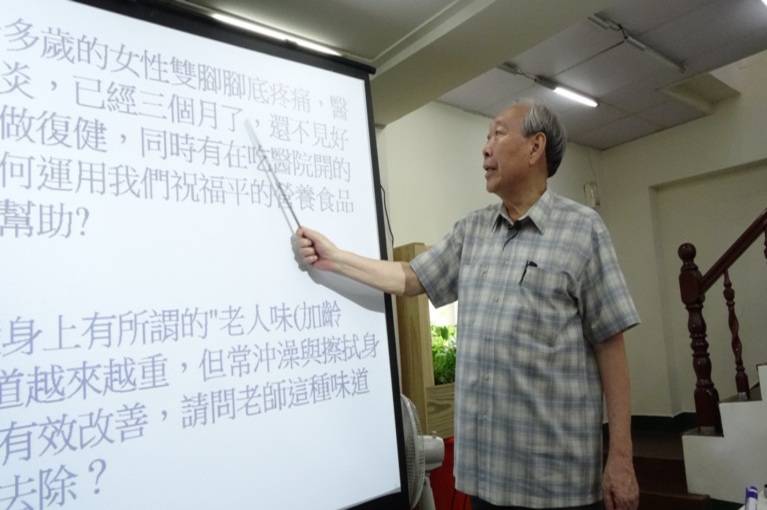 多歲的女性雙腳腳底疼痛，醫
炎，已經三個月了，還不見好
做復健，同時有在吃醫院開的
何運用我們祝福平的營養食品
幫助?
身上有所謂的"老人味(加齡
道越來越重，但常沖澡與擦拭身
有效改善，請問老師這種味道
去除？